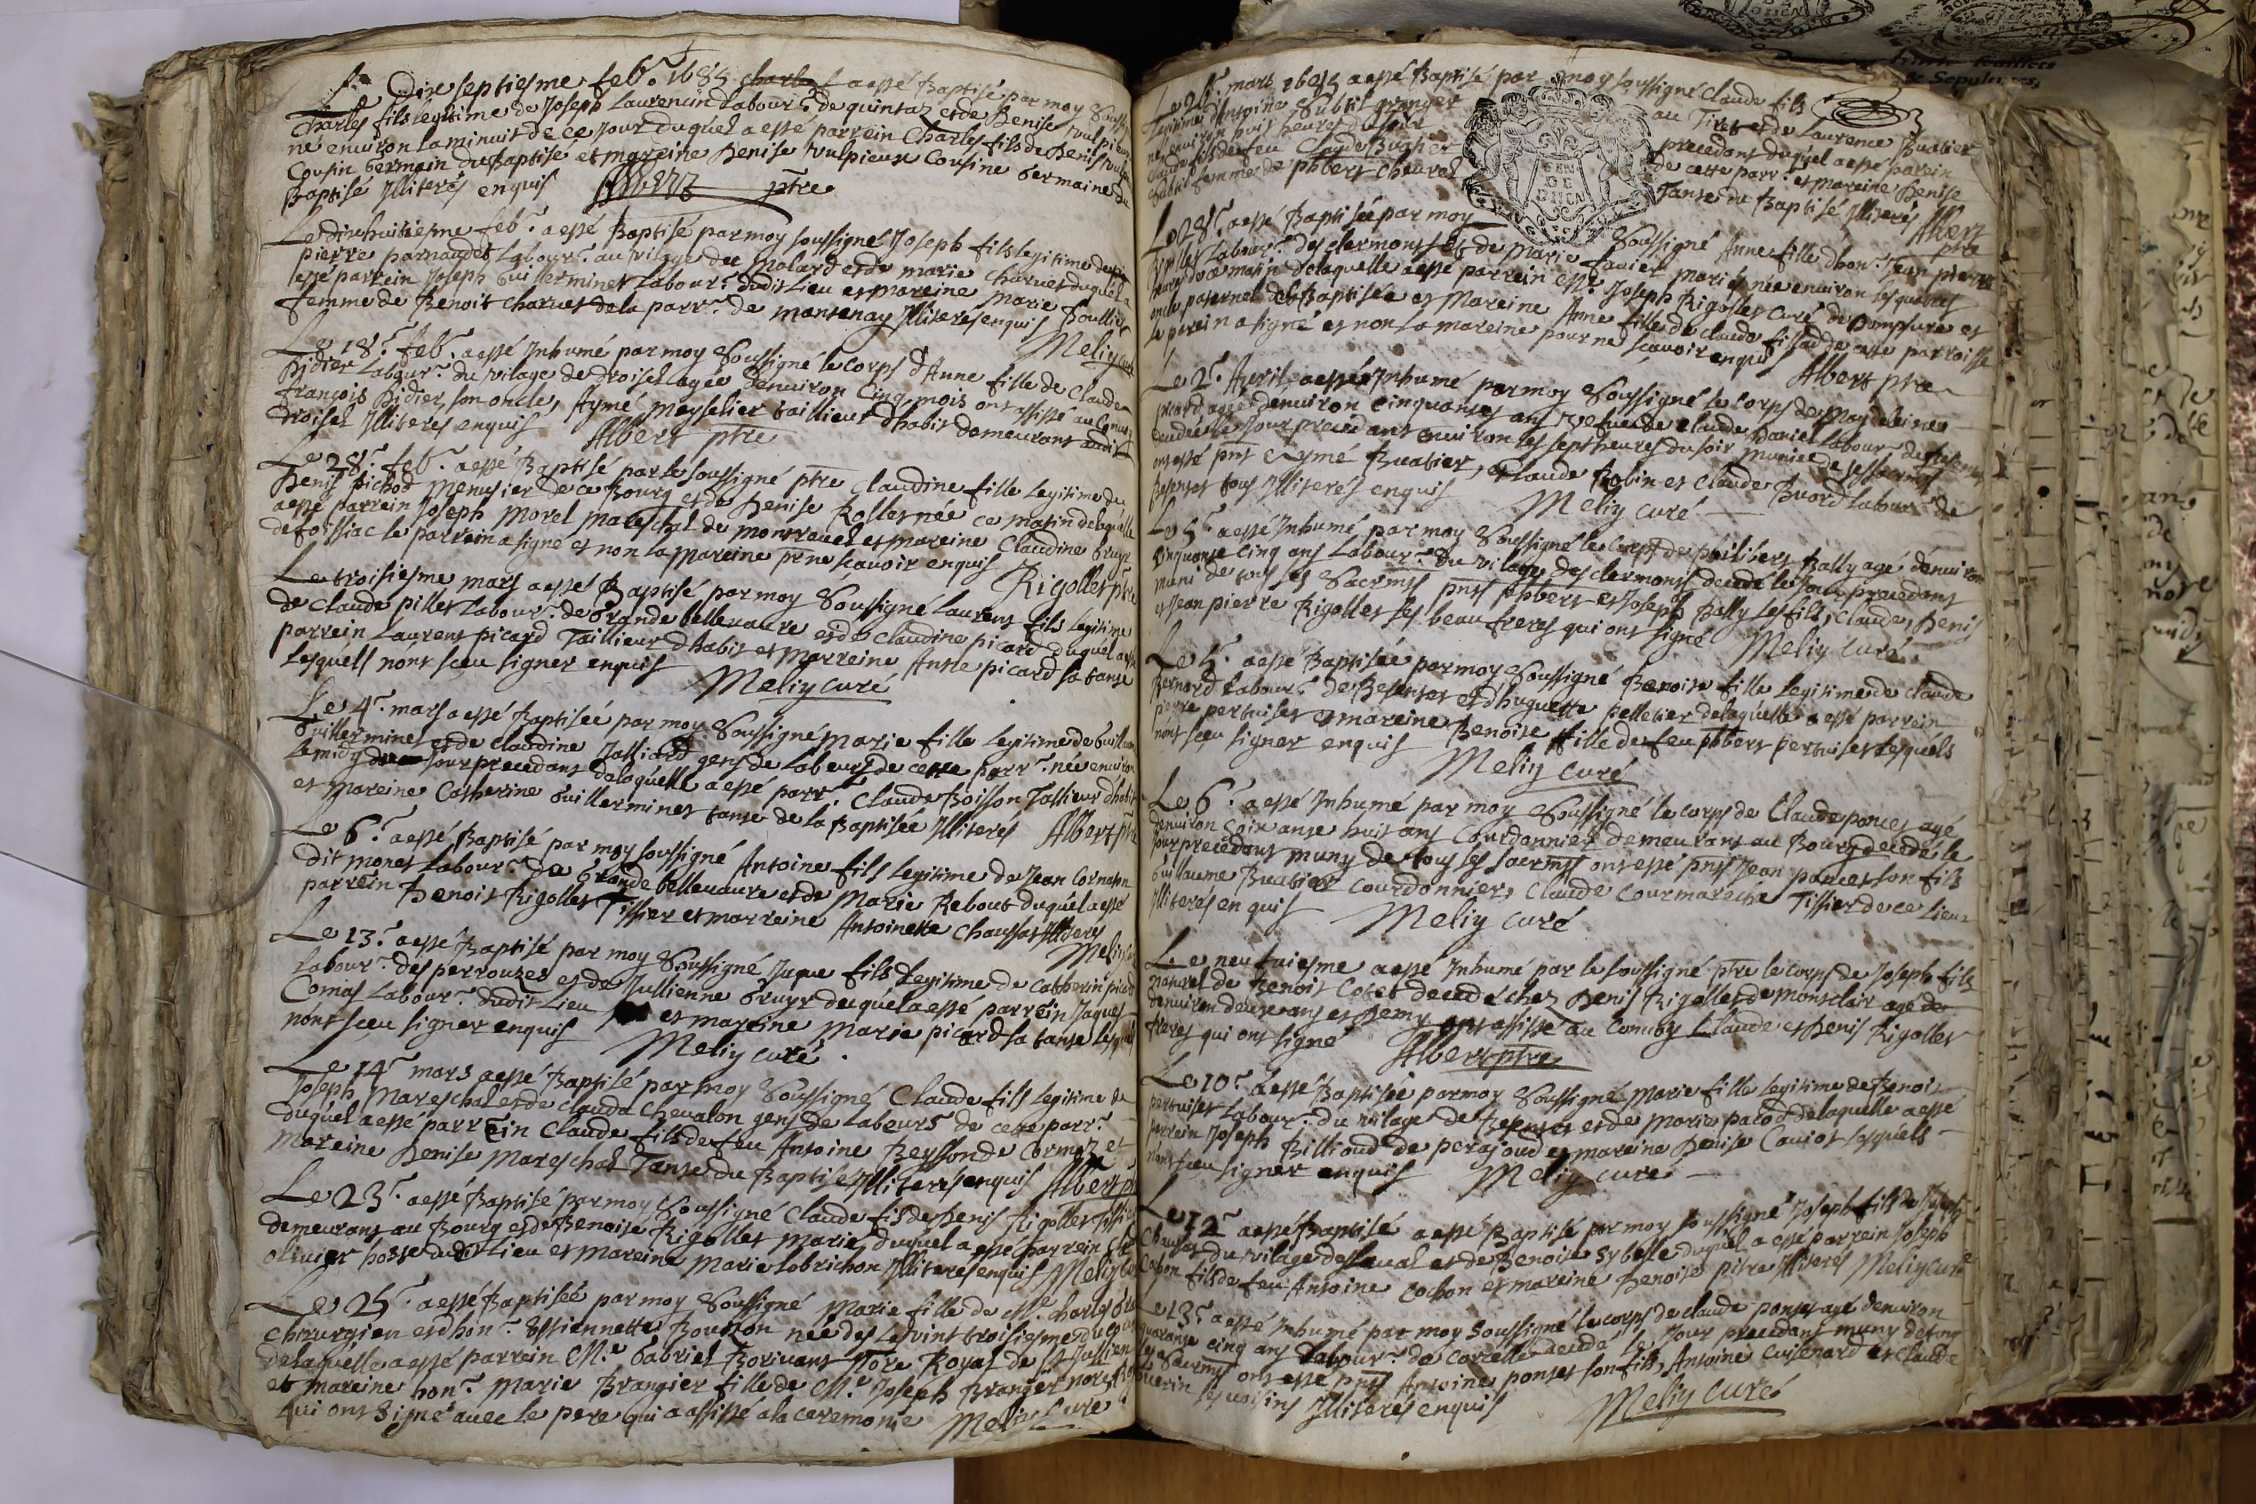 Le Dix septiesme feb. 1685 a esté Baptisé par moy Soussi
Charles fils legitime de Joseph Laurencin Labour. de quintaz et de Denise vulpieux
ne environ la minuit de ce jour duquel a esté parrein Charles fils de Denis
Cousin Germain du Baptisé et mareine Denise vulpieux Cousine Germaine du
Baptisé Illiterés enquis Albert ptre
Le dixhuitiesme feb. a esté Baptisé par moy soussigné Joseph fils legitime de
pierre parnaudet Labour. au vilage du Molard et de marie Charvet duquel a
esté parrein Joseph Guillerminet Labour. dudit Lieu et mareine Marie
femme de Benoit Charvet de la parr. de mantenay Illiterés enquis Meliy curé
Le 18. feb. a esté Inhumé par moy Soussigné le corps d'Anne fille de Claude
Didier Labour. du vilage de Droiset agée denviron Cinq mois ont assisté au Convoy
françois Didier son oncle, Aymé Meyselier taillieur dhabit demeurant audit
Droiset Illiterés enquis Albert ptre
Le 28. feb. a esté Baptisé par le soussigné ptre Claudine fille legitime de
Denis pichod Menusier de ce Bourg et de Denise Rollet née ce matin de laquelle
a esté parrein Joseph Morel Mareschal de montrevel et mareine Claudine
de foissiac le parrein a signé et non la mareine pr ne scavoir enquis Rigollet ptre
Le troisiesme mars a esté Baptisé par moy Soussigné Laurent fils legitime
de Claude pillet Labour. de Grande bellevavre et de Claudine picard duquel a esté
parrein Laurent picard Taillieur dhabit et Marreine Anne picard sa tante
Lesquels n'ont sceu signer enquis Meliy curé
Le 4. mars a esté Baptisée par moy Soussigné Marie fille legitime de Guill
Guillerminet et de Claudine Jassiard gens de Labeurs de cette parr. née environ
le midy jour precedant de laquelle a esté parr. Claude Boisson Tallieur dhabit
et Mareine Catherine Guillerminet tante de la Baptisée Illiterés Albert ptre
Le 6. a esté Baptisé par moy soussigné Antoine fils Legitime de Jean Cornaton
dit monet Labour. de Grande bellevavre et de Marie Rebout duquel a esté
parrein Benoit Rigollet Tissier et marreine Antoinette Chaussat Illiterés
Meliy
Le 13. a esté Baptisé par moy Soussigné Jaque fils Legitime de Catherin picard
Labour. des perrouzes et de Jullienne Gruyr duquel a esté parrein Jaques
Comas Labour. dudit Lieu et mareine Marie picard sa tante Lesquels
n'ont sceu signer enquis Meliy curé
Le 14. mars a esté Baptisé par moy Soussigné Claude fils Legitime de
Joseph Mareschal et de Claude Chevalon gens de Labeurs de cette parr.
duquel a esté parrein Claude fils de feu Antoine Beysson de Cormoz et
Mareine Denise Mareschal Tante du Baptisé Illiterés enquis Albert p
Le 23. a esté Baptisé par moy Soussigné Claude fils de Denis Rigollet Tissier
demeurant au Bourg et de Benoite Rigollet mariés duquel a esté parrein
olivier hoste dudit Lieu et mareine Marie Lobrichon Illiterés enquis Meliy
Le 25. a esté Baptisée par moy Soussigné Marie fille de Mr. Charles
chirurgien et d'hon. Estiennette Bouston née des Le vint troisiesme du
de laquelle a esté parrein M.e Gabriel Borivant Nore Royal de St Jullien
et mareine hon. Marie Brangier fille de M.e Joseph Brangier
qui ont signé avec le pere qui a assisté a la ceremonie Meliy curé
Le 25. mart 1685 a esté Baptisé par moy soussigné Claude fils
legitime d'Antoine Subtil granger au Tiret et de Laurence Buatier
né environ huit heures du soir precedant duquel a esté parein
Claude fils de feu Claude de cette parr. et mareine Denise
Subtil femme de phbert Chevrel Tante du Baptisé Illiterés Albert
ptre
Le 28. a esté Baptisée par moy Soussigné Anne fille dhon. Jean pierre
Labour. des clermonts et de Marie favier mariés née environ les quatres
heures du matin de laquelle a esté parrein Mr. Joseph Rigollet Curé de Dompsure et
oncle paternel de la Baptisée et Mareine Anne fille de claude de cette parroisse
le parein a signé et non la mareine pour ne scavoir enquis
Albert ptre
Le 2. Avril a esté Inhumé par moy Soussigné le corps de Magdeleine
picard agée denviron cinquante ans vefue de claude Daniel Labour. de
decedée le jour precedant environ les sept heures du soir munie de ses sacrmts
ont esté pnts Aymé Buatier, et Claude Robin et Claude Buord Labour. de
Besentet tous Illiterés enquis Meliy curé
Le 5. a esté Inhumé par moy Soussigné le corps de philibert Bally agé denviron
Cinquante cinq ans Labour. du vilage des clermonts decedé le jour precedant
muni de tous les Sacrmts pnts phbert et Joseph Bally ses fils, Claude, Denis
et Jean pierre Rigollet ses beau freres qui ont signé Meliy curé
Le 5. a esté Baptisée par moy Soussigné Benoite fille legitime de claude
Bernard Labour. de Besentet et d'huguette pelletier de laquelle a esté parrein
pierre pertuiset et mareine Benoite fille de feu phbert pertuiset Lesquels
n'ont sceu signer enquis Meliy curé
Le 6. a esté Inhumé par moy Soussigné le corps de Claude poncet agé
denviron Soixante huit ans Courdonnier demeurant au Bourg decedé le
jour precedant muny de tous les sacrmts ont esté pnts Jean poncet son fils
Guillaume Buatier courdonnier, Claude Courmareche Tissier de ce Lieu
Illiterés enquis Meliy curé
Le neufuiesme a esté Inhumé par le soussigné ptre le corps de Joseph fils
naturel de Benoit Cotet decedé chez Denis Rigollet de montclair agé de
denviron deux ans et demy ont assisté au Convoy Claude et Denis Rigollet
freres qui ont signé Albert ptre
Le 10. a esté Baptisée par moy Soussigné Marie fille legitime de Benoit
pertuiset Labour. du vilage de Besentet et de Marie pacod de laquelle a esté
parrein Joseph Billioud de perajoud et mareine Denise Caviot Lesquels
n'ont sceu signer enquis Meliy curé
Le 12. a esté Baptisé a esté Baptisé par moy soussigné Joseph fils de Joseph
du vilage de Laval et de Benoite Sybelle duquel a esté parrein Joseph
Cochon fils de feu Antoine Cochon et mareine Benoite pitre Illiterés Meliy curé
Le 13. a esté Inhumé par moy Soussigné le corps de claude ponset agé denviron
quarante cinq ans Labour. de corcelle decedé le jour precedant muny de tous
les Sacrmts ont esté pnts Antoine ponset son fils, Antoine cuisenard et Claude
Guerin ses voisins Illiterés enquis Meliy curé